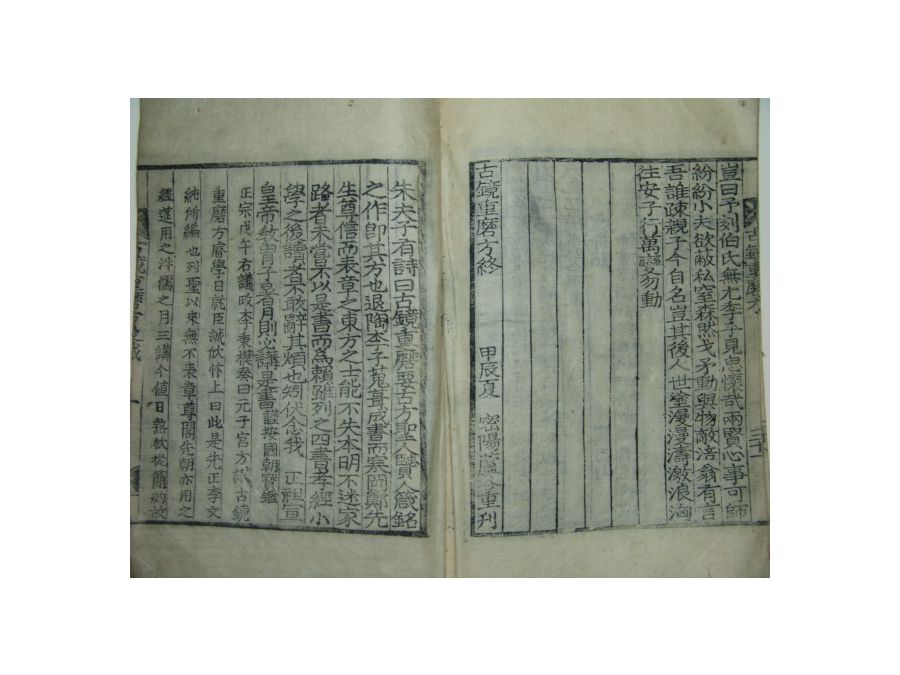 豈曰予刻伯氏無尤季子見忠懷哉兩賢心事可師
紛紛小夫欲敝私窒森然戈矛動與物敵涪翁有言
吾誰疎親子今自名豈其後人世塗漫漫濤激浪洶
往安子行萬變勿動
古鏡重磨方終
甲辰夏 密陽 重刊
古鏡重磨方
朱夫子有詩曰古鏡重磨要古方聖人贒人箴銘
之作卽其方也退陶李子蒐葺成書而寒岡鄭先
生尊信而表章之東方之士能不失本明不迷家
路者未嘗不以是書而爲賴雖列之四書孝經小
學之後讀者不敢辭其煩也矧伏念我 正祖宣
皇帝敎冑子暑月則必講是書謹按國朝寶鑑
正宗戊午右議政李秉模奏曰元子宮方講古鏡
重磨方睿學日就臣誠欣忭上曰此是先正李文
純所編也列聖以來無不表章尊閣先朝亦用之
經筵用之泮儒之月三講今値日熱欲從簡約故